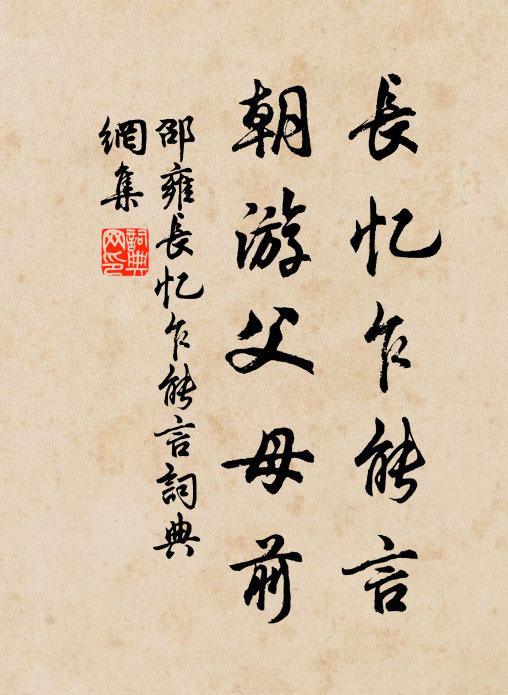 長忆乍能言
朝游父母前
邵雍長忆乍能言詞典
網集
詞典
网印